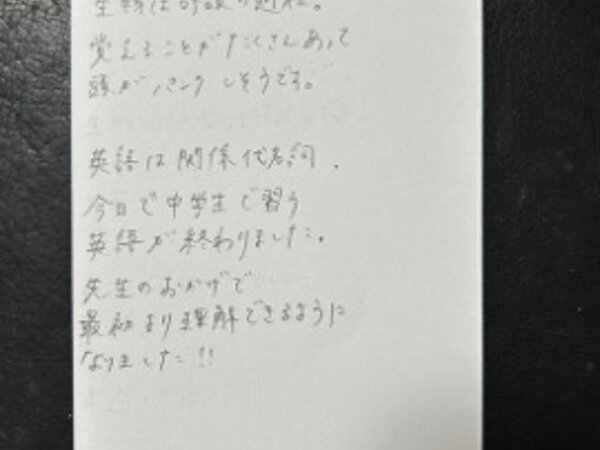 生物は
覚えることがたくさんあって
頭がパンクしそうです。
英語は関係代名詞.
今日で中学生で習う
英語が終わりました。
先生のおかげで
最初より理解できるように
なりました!!